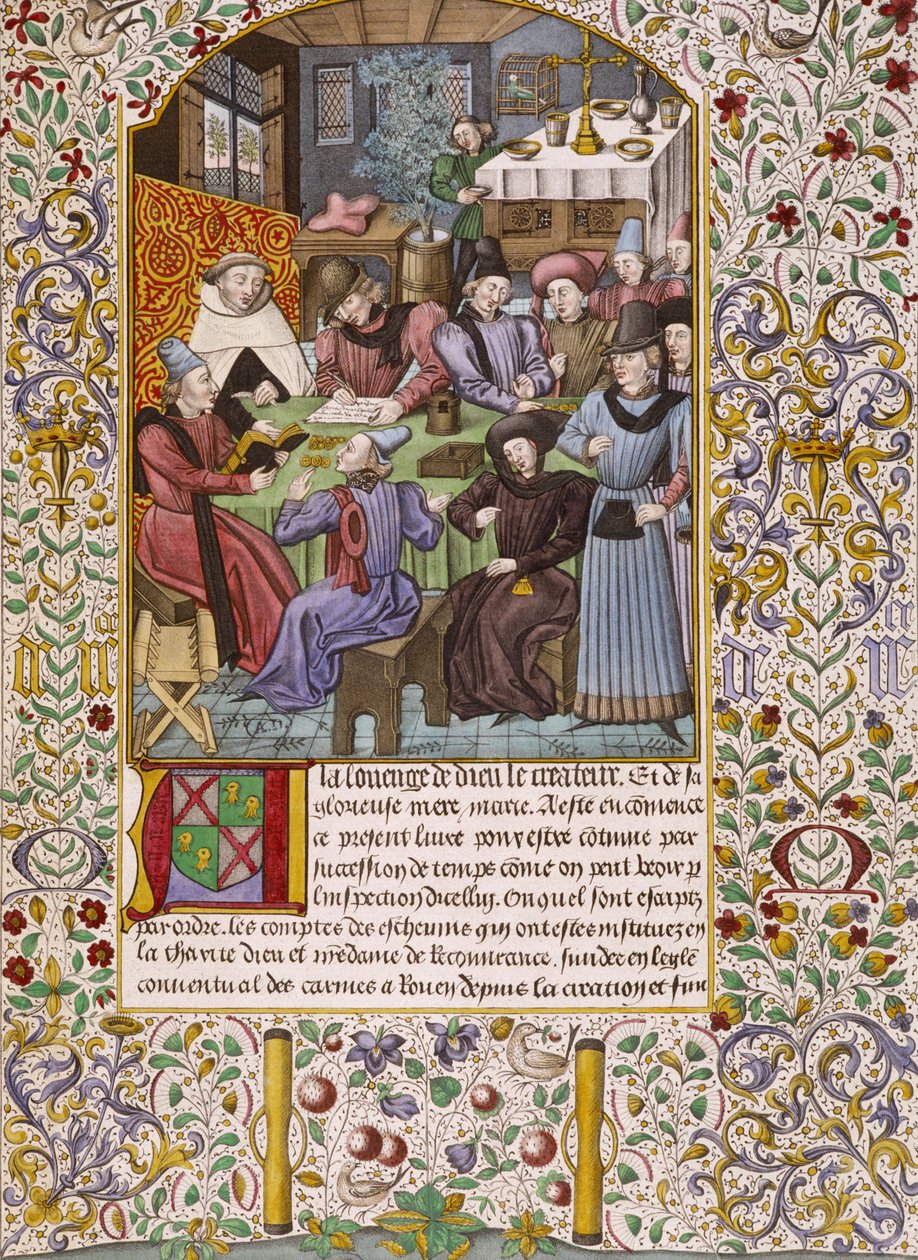 la louenge de dieu le createur. Et de sa
glorieuse mere marie. A este en cōmence
ce present liure pour estre cōtinue par
succession de temps cōme on peut veoir p
linspection dicelluy. Ouquel sont escriptz
par ordre. les comptes des escheuins qui ont estes instituez en
la charite dieu et nr̄edame de Recouurance. fundee en leglē
conuentual des carmes a Rouen depuis la creation et fun